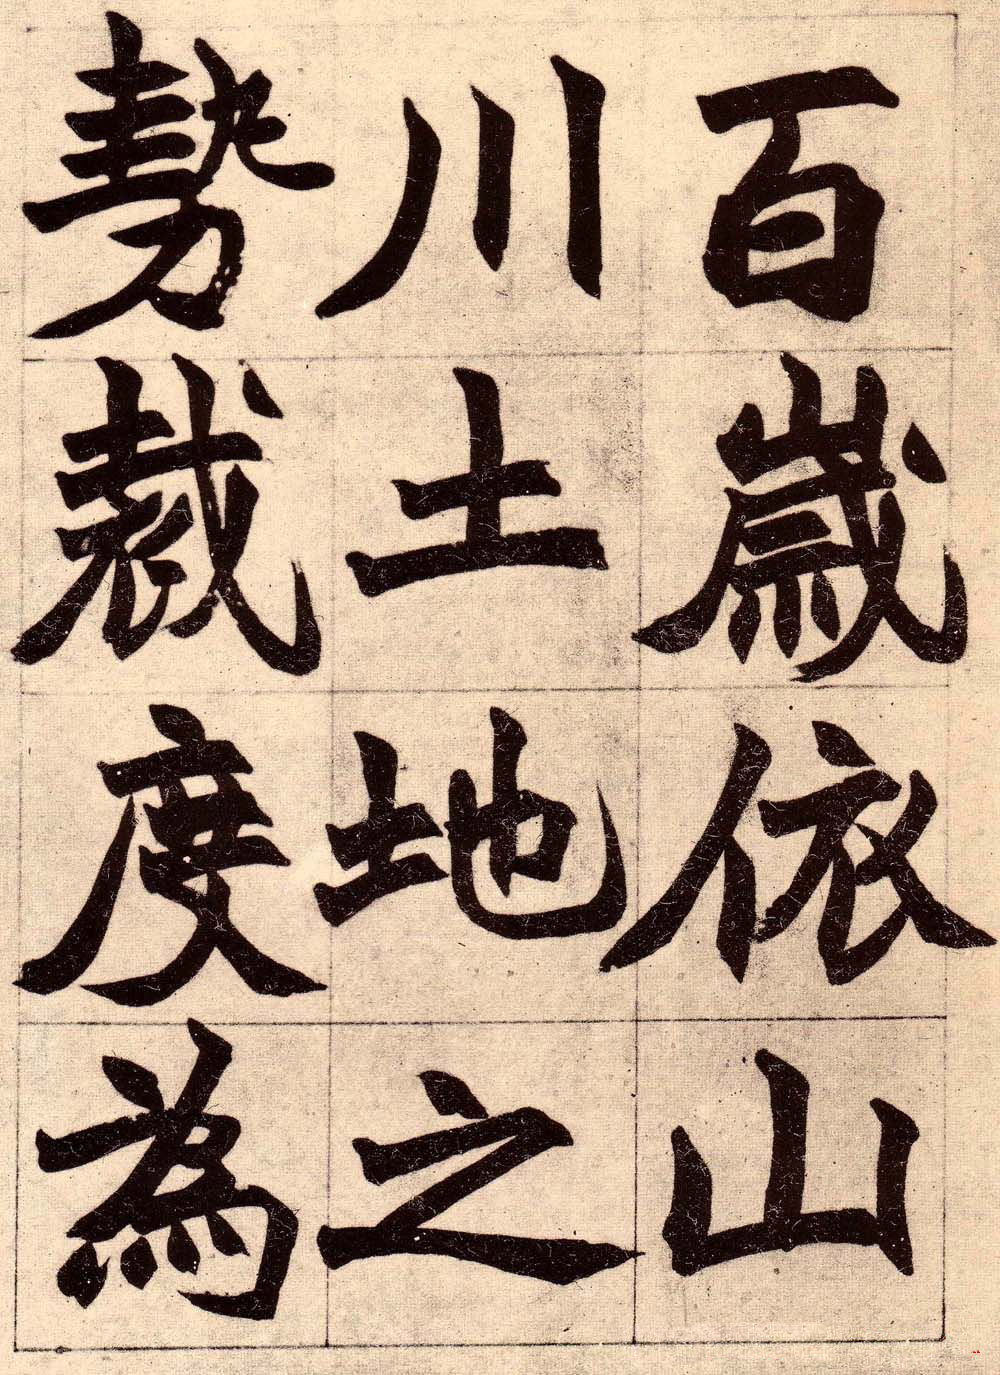 百歳依山
川土地之
勢裁度為